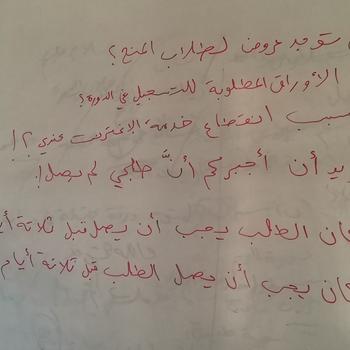 ستوجد عروض لطلاب المنح؟
الأوراق المطلوبة للتسجيل في الدورة؟
سبب انقطاع خدمة الإنترنت عندي؟!
أن أخبركم أنَّ طلبي لم يصل!
كان الطلب يجب أن يصل قبل ثلاثة
كان يجب أن يصل الطلب قبل ثلاثة أيام